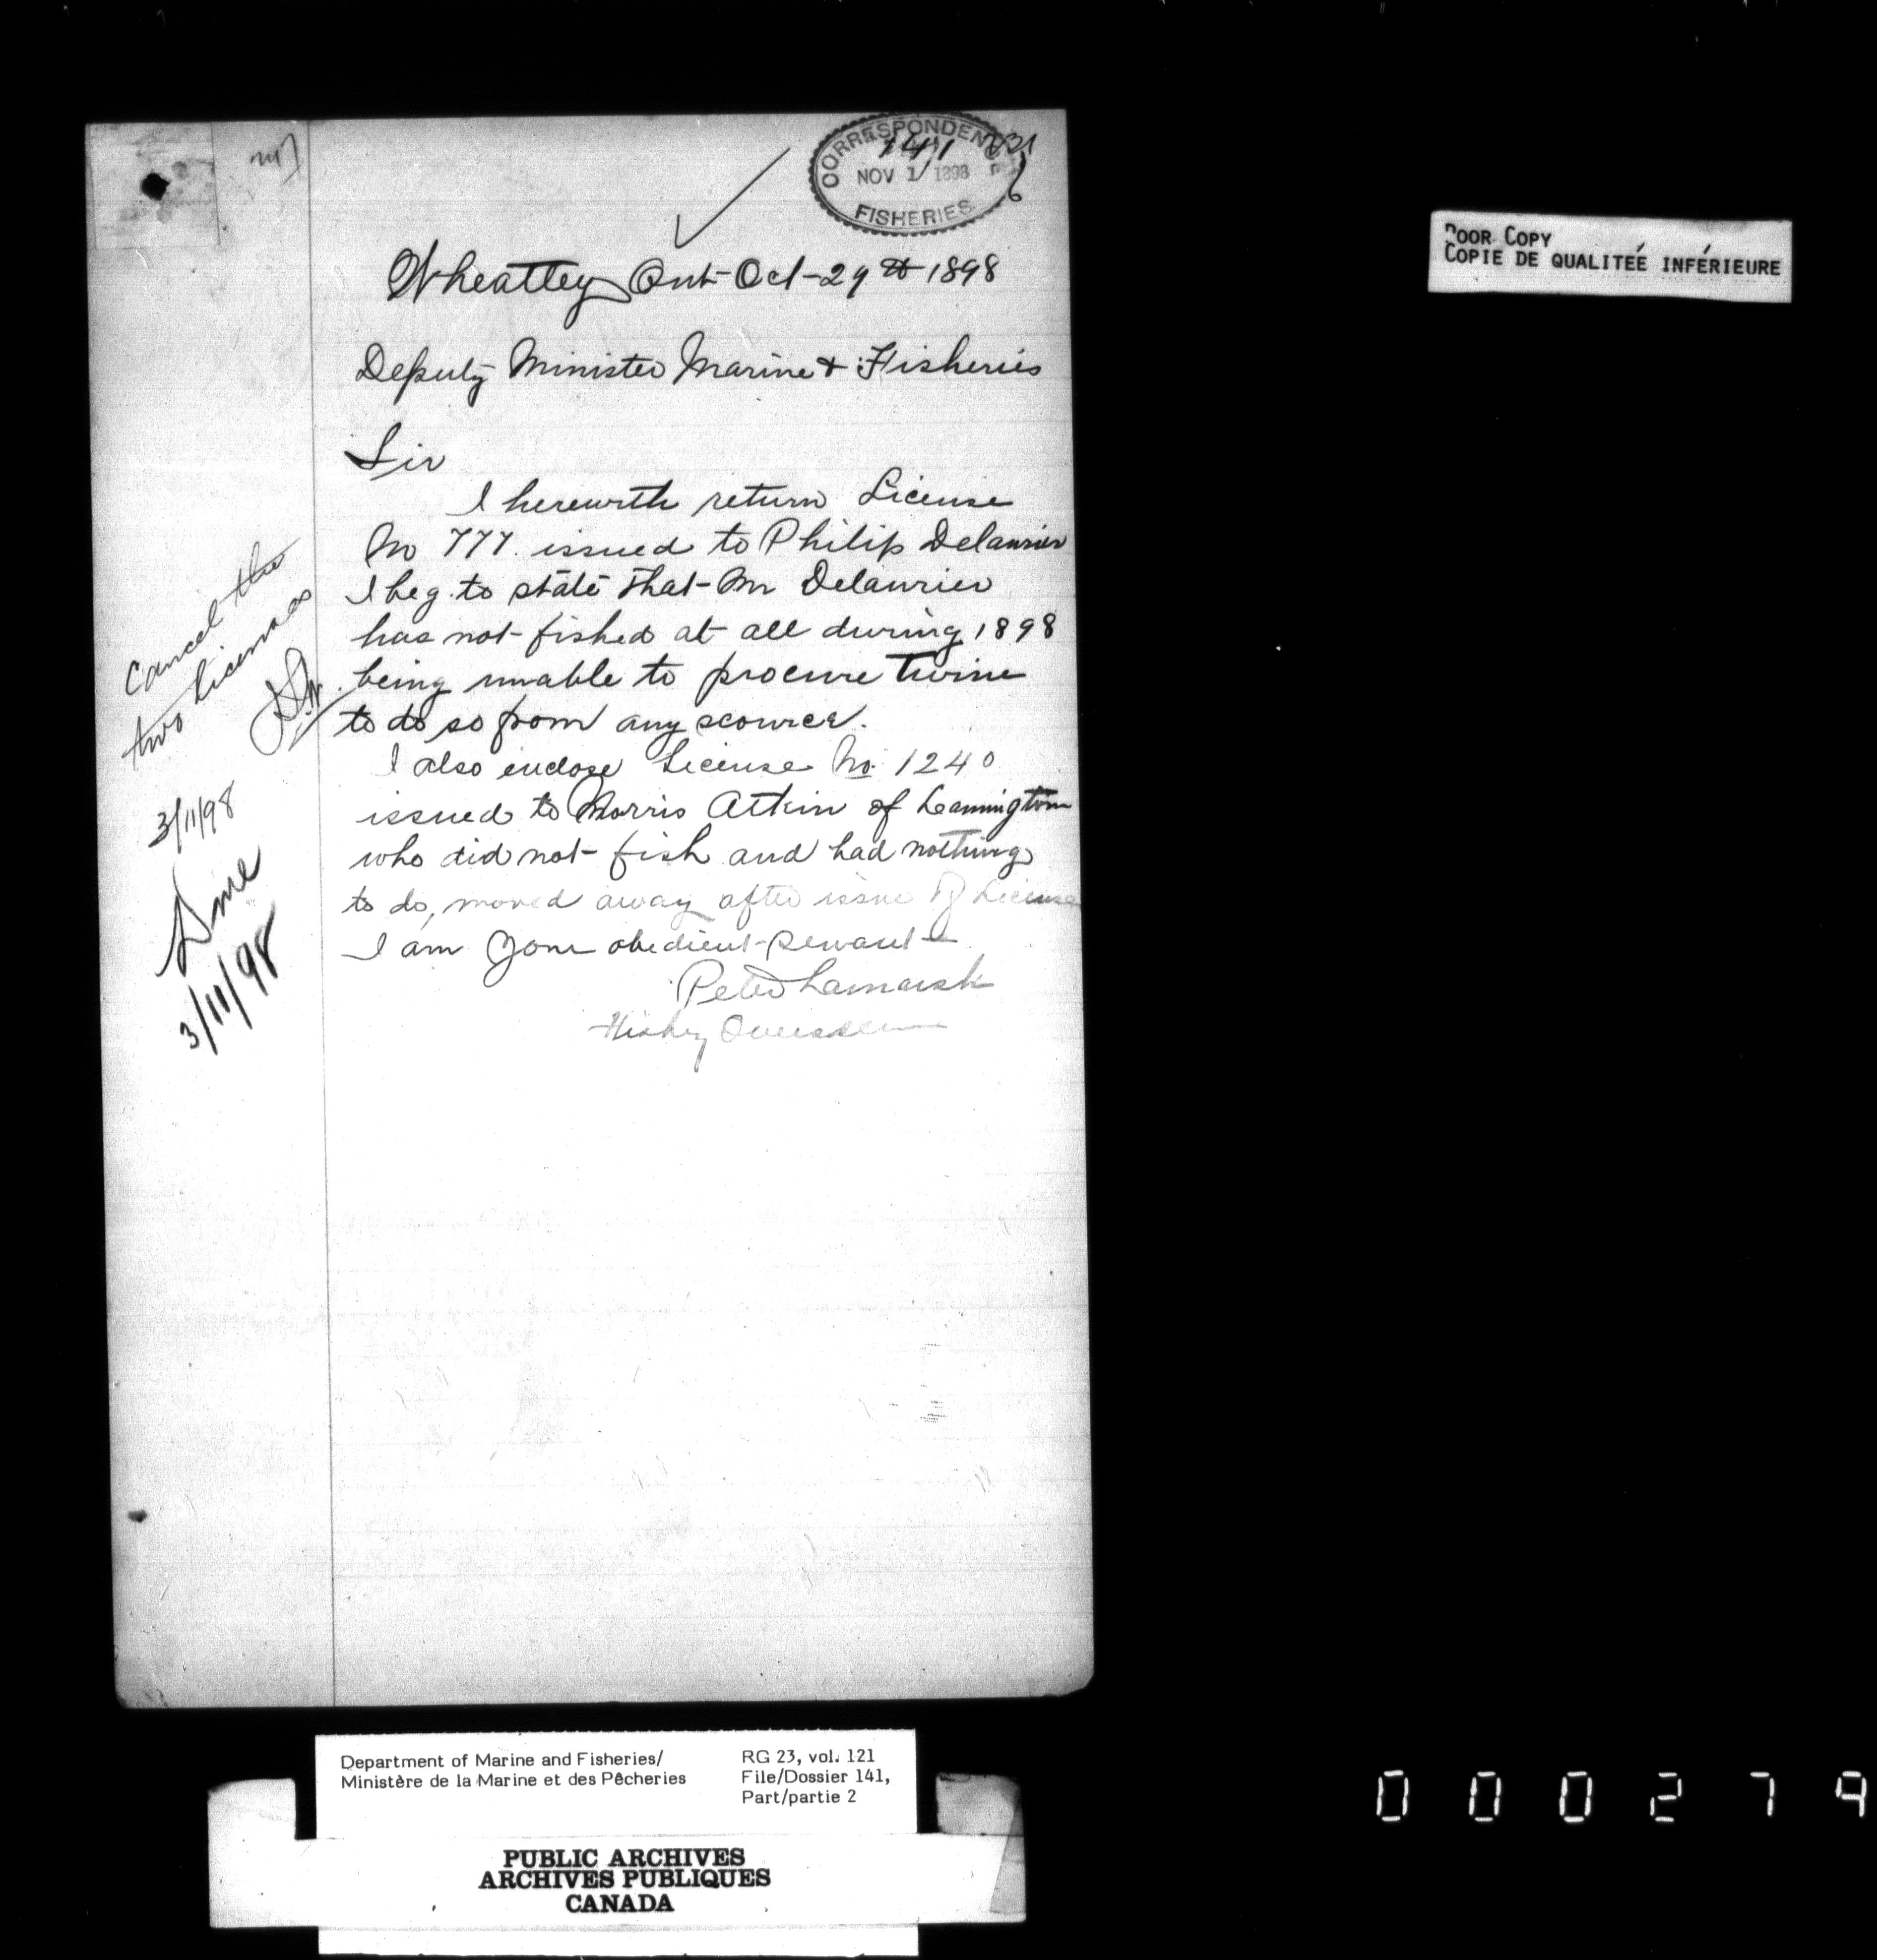 CORRESPONDENCE
141 321
NOV 1 1898
FISHERIES
Wheatley Ont Oct 29th 1898
Deputy Minister Marine & Fisheries
Sir
I herewith return License
No 777 issued to Philip Delaurier
I beg to state that Mr Delaurier
has not fished at all during 1898
being unable to procure twine
to do so from any scource.
I also enclose License No. 1240
issued to Morris Atkin of Leamington
who did not fish and had nothing
to do, moved away after issue of License
I am your obedient servant
Peter Lamarsh
Fishery Overseer
Cancel the
two licenses
3/11/98
Done
3/11/98
POOR COPY
COPIE DE QUALITEÉ INFÉRIEURE
Department of Marine and Fisheries/
Ministère de la Marine et des Pêcheries
RG 23, vol. 121
File/Dossier 141,
Part/partie 2
PUBLIC ARCHIVES
ARCHIVES PUBLIQUES
CANADA
000279